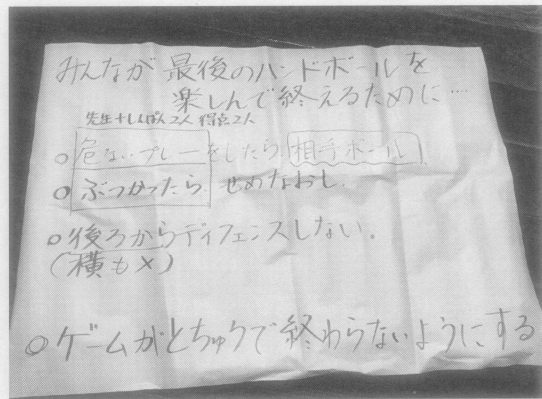 みんなが 最後のハンドボールを
楽しんで終えるために…
先生+しんぱん2人 得点2人
○危ないプレーをしたら 相手ボール
○ぶつかったら せめなおし.
○後ろからディフェンスしない。
(横も×)
◎ゲームがとちゅうで終わらないようにする